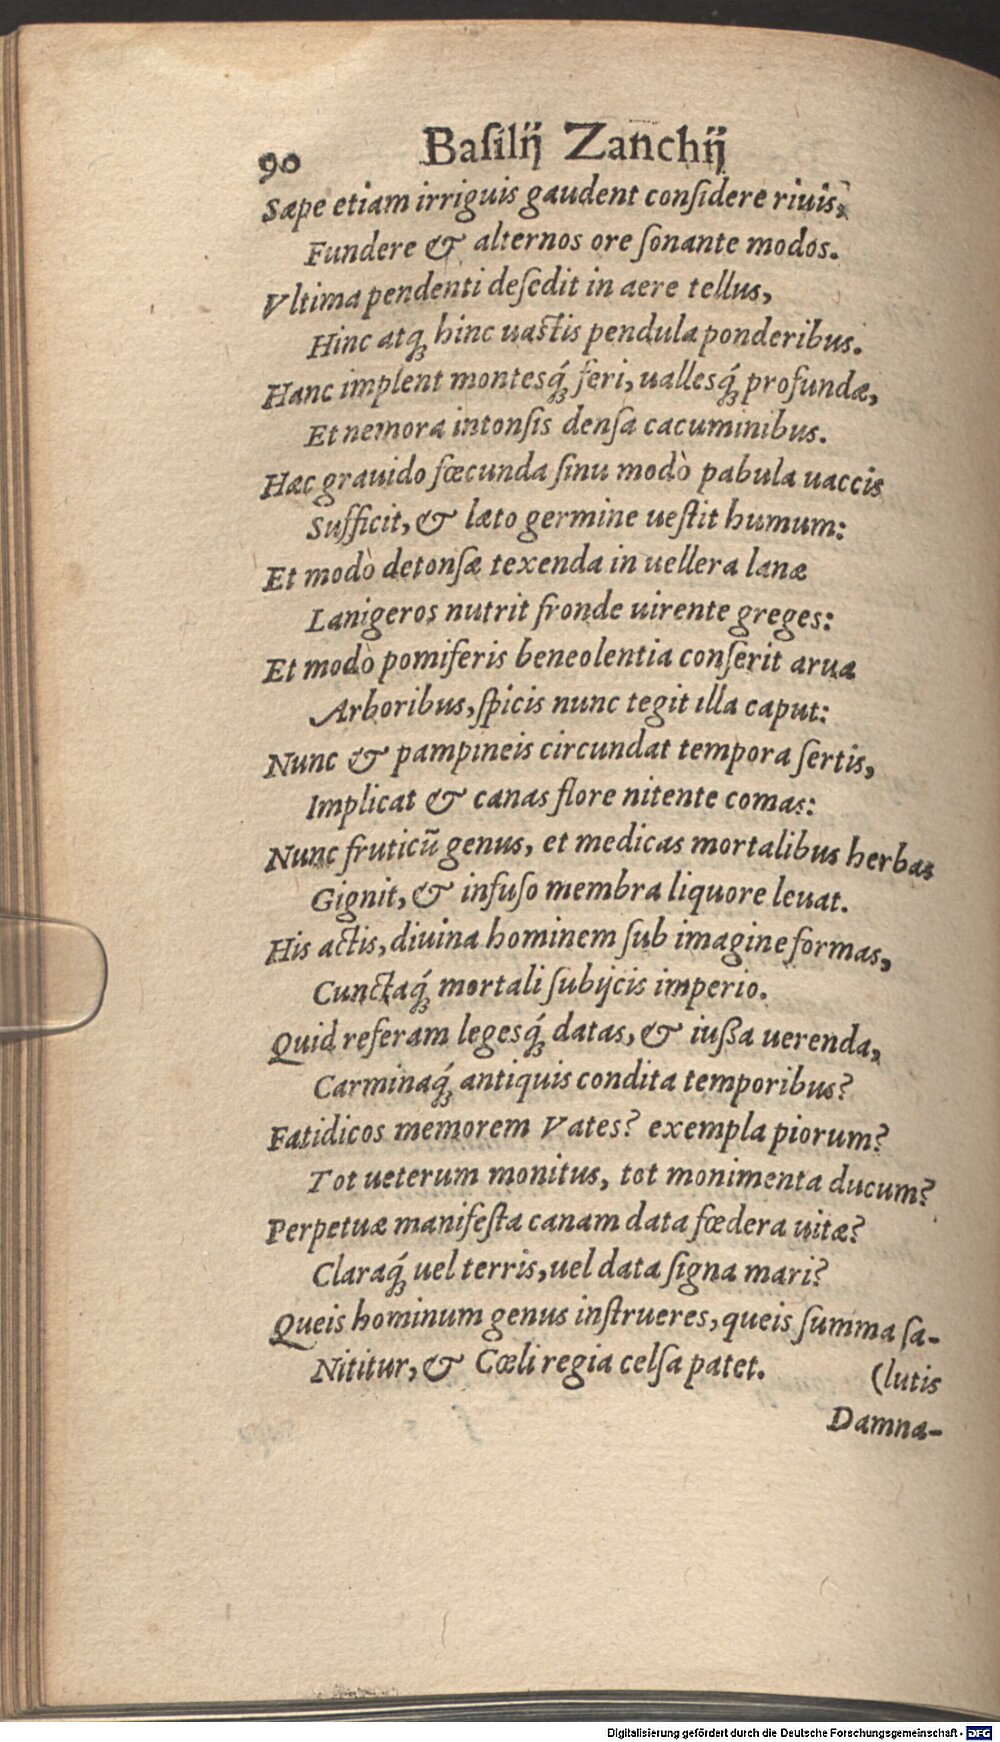 90 Baſilij Zanchij
Sæpe etiam irriguis gaudent conſidere riuis,
Fundere & alternos ore ſonante modos.
Vltima pendenti deſedit in aere tellus,
Hinc atq; hinc uaſtis pendula ponderibus.
Hanc implent montesq́; feri, uallesq́; profundæ,
Et nemora intonſis denſa cacuminibus.
Hæc grauido fœcunda ſinu modò pabula uaccis
Sufficit, & læto germine ueſtit humum:
Et modò detonſæ texenda in uellera lanæ
Lanigeros nutrit fronde uirente greges:
Et modò pomiferis beneolentia conſerit arua
Arboribus, ſpicis nunc tegit illa caput:
Nunc & pampineis circundat tempora ſertis,
Implicat & canas flore nitente comas:
Nunc fruticū genus, et medicas mortalibus herbas
Gignit, & infuſo membra liquore leuat.
His actis, diuina hominem ſub imagine formas,
Cunctaq́; mortali ſubijcis imperio.
Quid referam legesq́; datas, & iuſſa uerenda,
Carminaq́; antiquis condita temporibus?
Fatidicos memorem Vates? exempla piorum?
Tot ueterum monitus, tot monimenta ducum?
Perpetuæ manifeſta canam data fœdera uitæ?
Claraq́; uel terris, uel data ſigna mari?
Queis hominum genus inſtrueres, queis ſumma ſa-
Nititur, & Cœli regia celſa patet. (lutis
Damna-
Digitalisierung gefördert durch die Deutsche Forschungsgemeinschaft - DFG